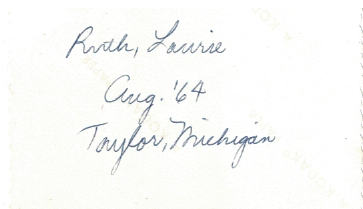 Ruth, Laurie
Aug. '64
Taylor, Michigan